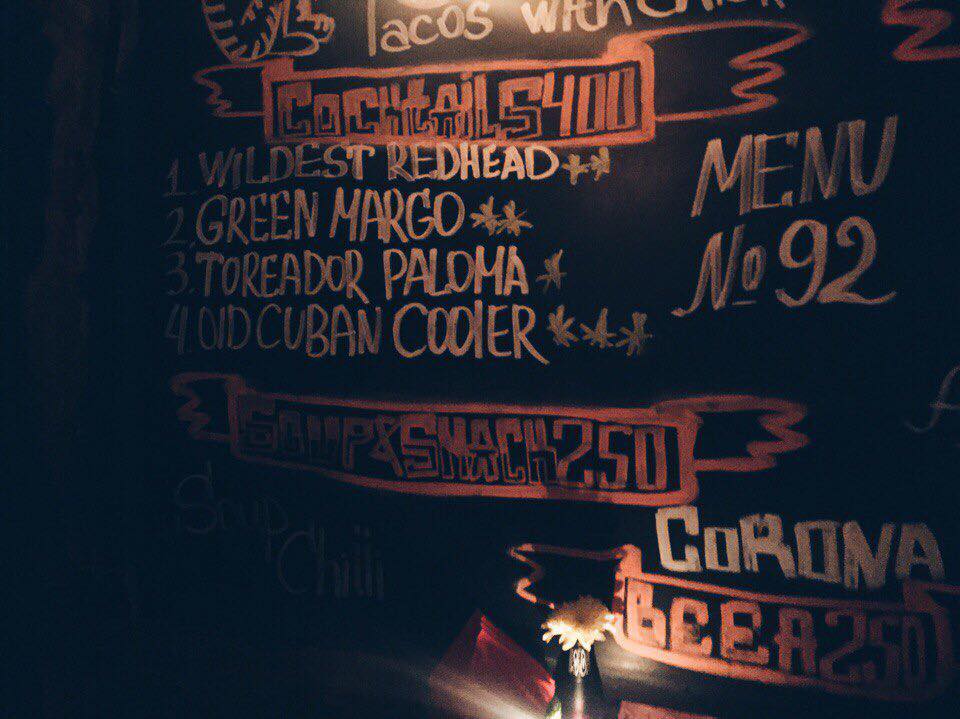 Tacos with
Cocktails 400
1. WILDEST REDHEAD**
2. GREEN MARGO**
3. TOREADOR PALOMA*
4. Old CUBAN COOlER***
MENU
№ 92
Soup & Snack 250
Soup
Chilli
CORONA
BEER 250